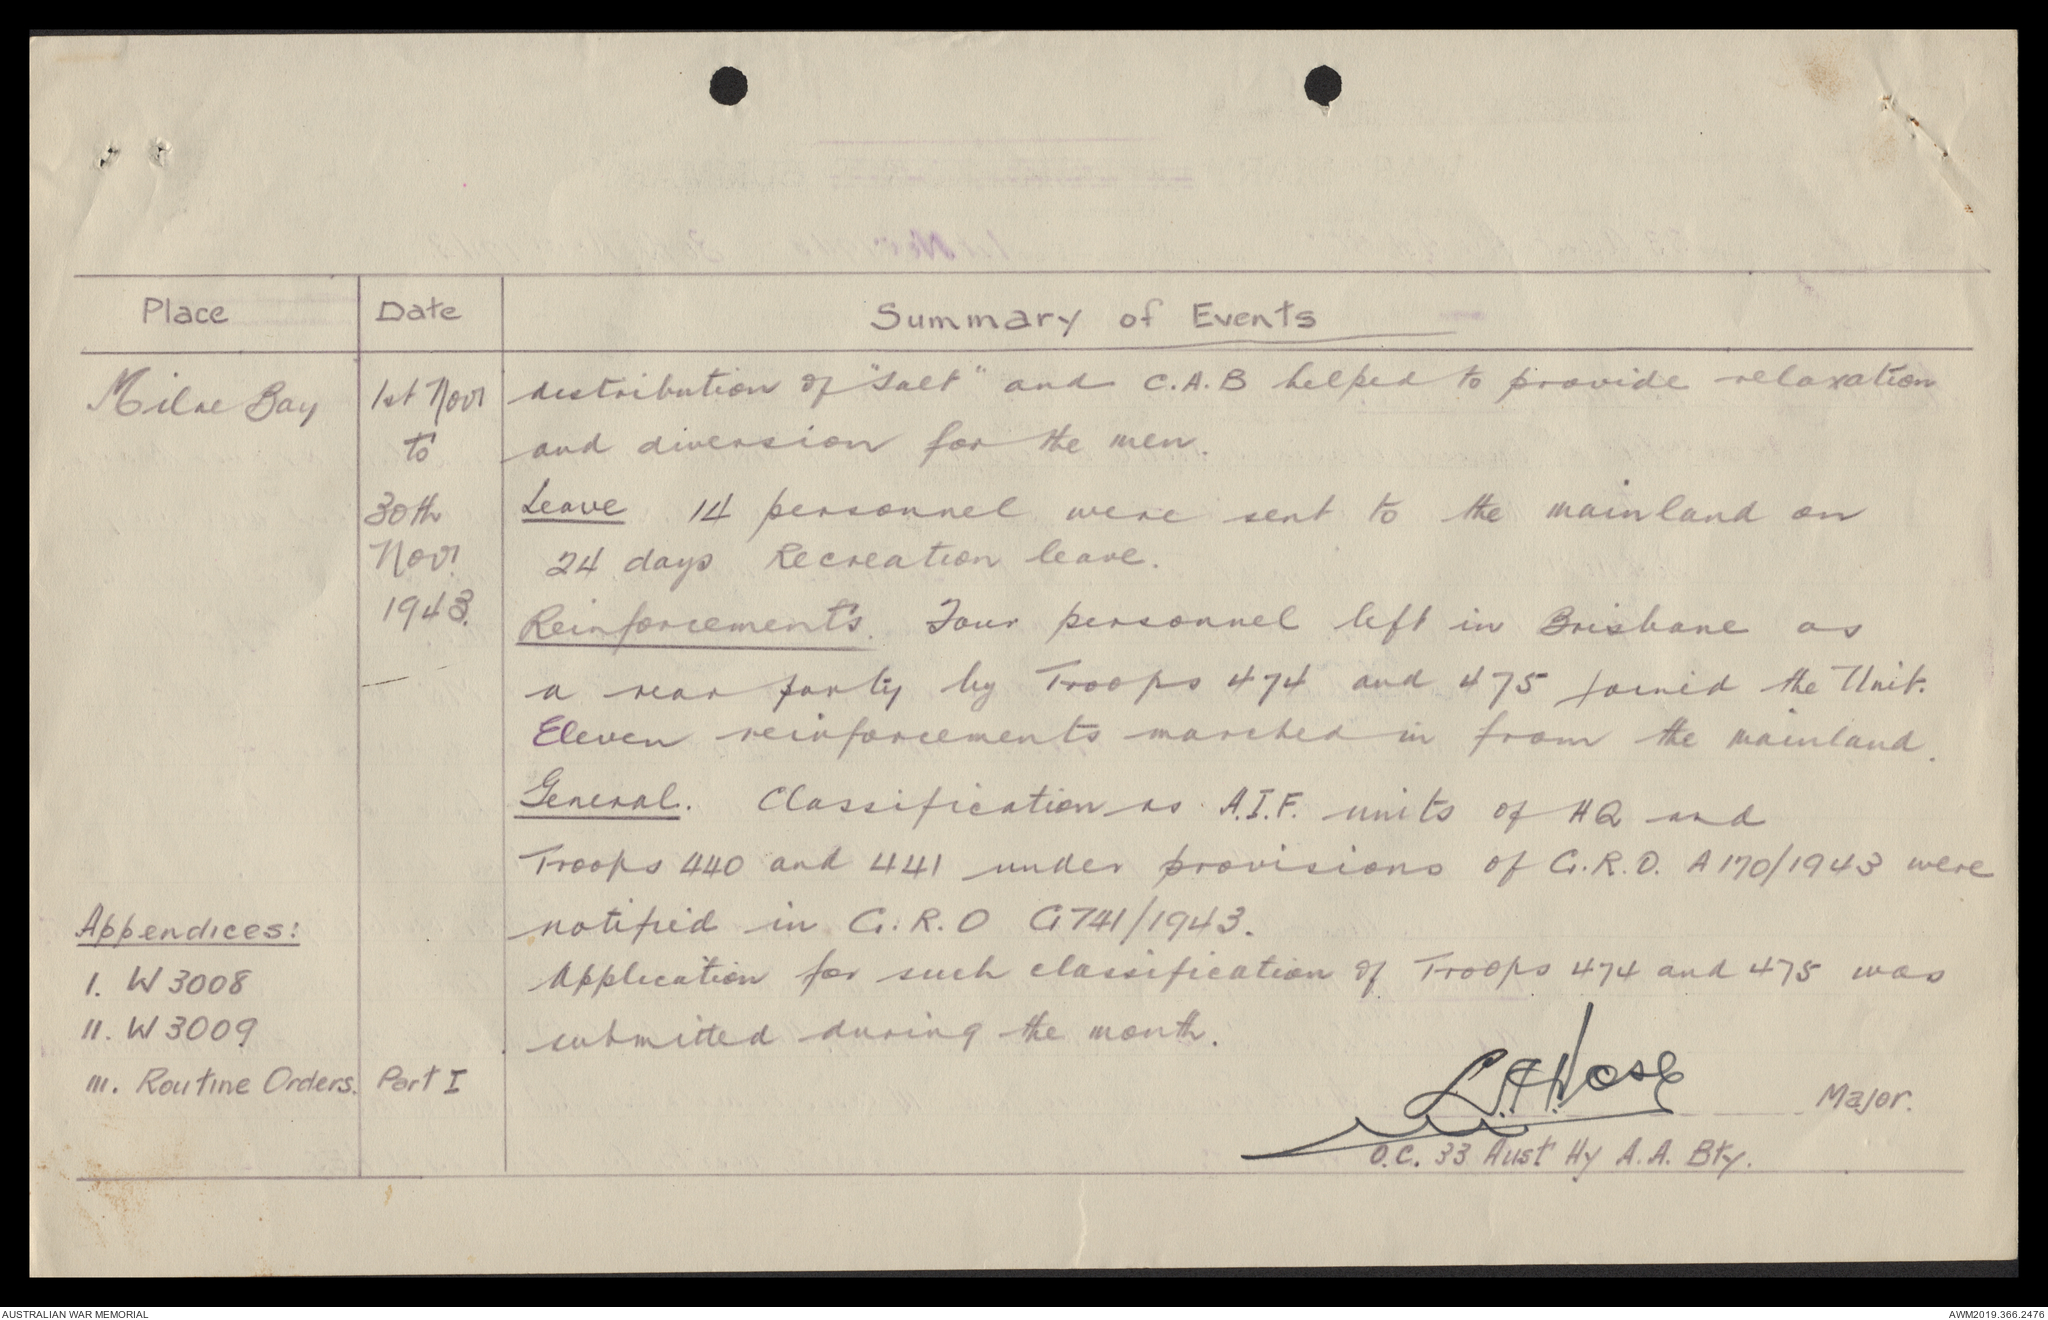 Place
Date
Summary of Events
Milne Bay
1st Nov
to
30th
Nov.
1943.
distribution of "Salt" and C.A.B helped to provide relaxation
and diversion for the men.
Leave 14 personnel were sent to the mainland on
24 days Recreation leave.
Reinforcements. Four personnel left in Brisbane as
a rear party by Troops 474 and 475 joined the Unit.
Eleven reinforcements marched in from the mainland.
General. Classification as A.I.F. units of HQ and
Troops 440 and 441 under provisions of G.R.O. A170/1943 were
notified in G.R.O G741/1943.
Application for such classification of Troops 474 and 475 was
submitted during the month.
Appendices:
I. W3008
II. W3009
III. Routine Orders. Part I
Hose Major.
O.C. 33 Aust Hy A.A. Bty.
AUSTRALIAN WAR MEMORIAL
AWM2019.366.2476